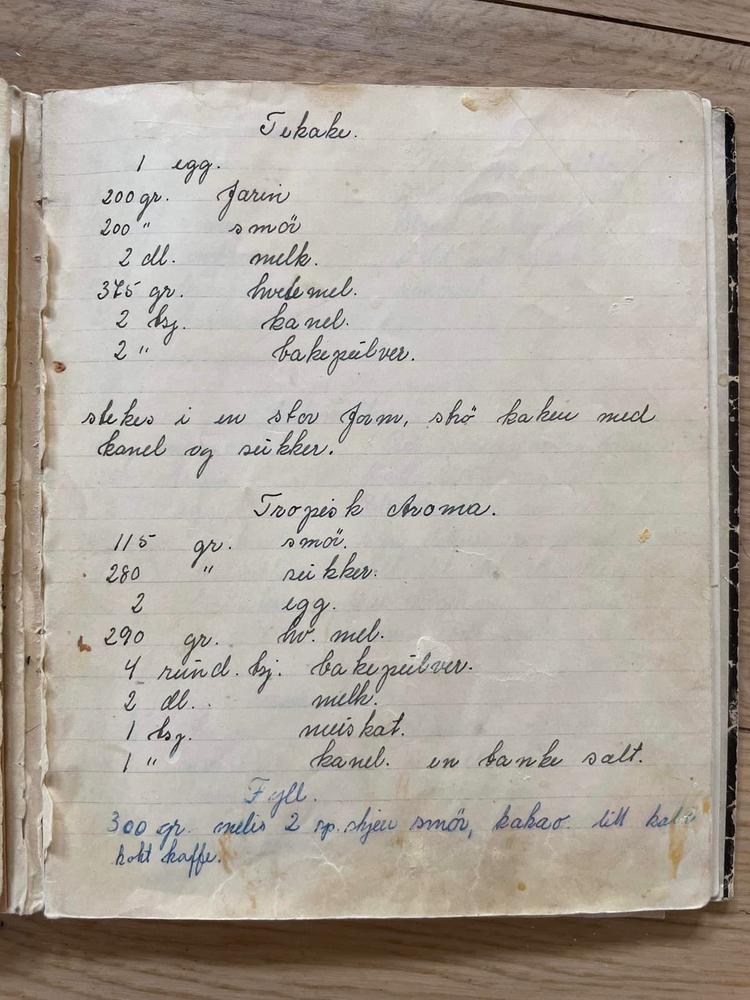 Tekake.
1 egg.
200 gr. farin
200 " smör
2 dl. melk.
375 gr. hvetemel.
2 tsj. kanel.
2 " bakepulver.
stekes i en stor form, strö kaken med
kanel og sukker.
Tropisk Aroma.
115 gr. smör.
280 " sukker.
2 egg.
290 gr. hv. mel.
4 rund. tsj. bakepulver.
2 dl. melk.
1 tsj. muskat.
1 " kanel. en tanke salt.
Fyll.
300 gr. melis 2 sp. skjeer smör, kakao. litt kald
kokt kaffe.